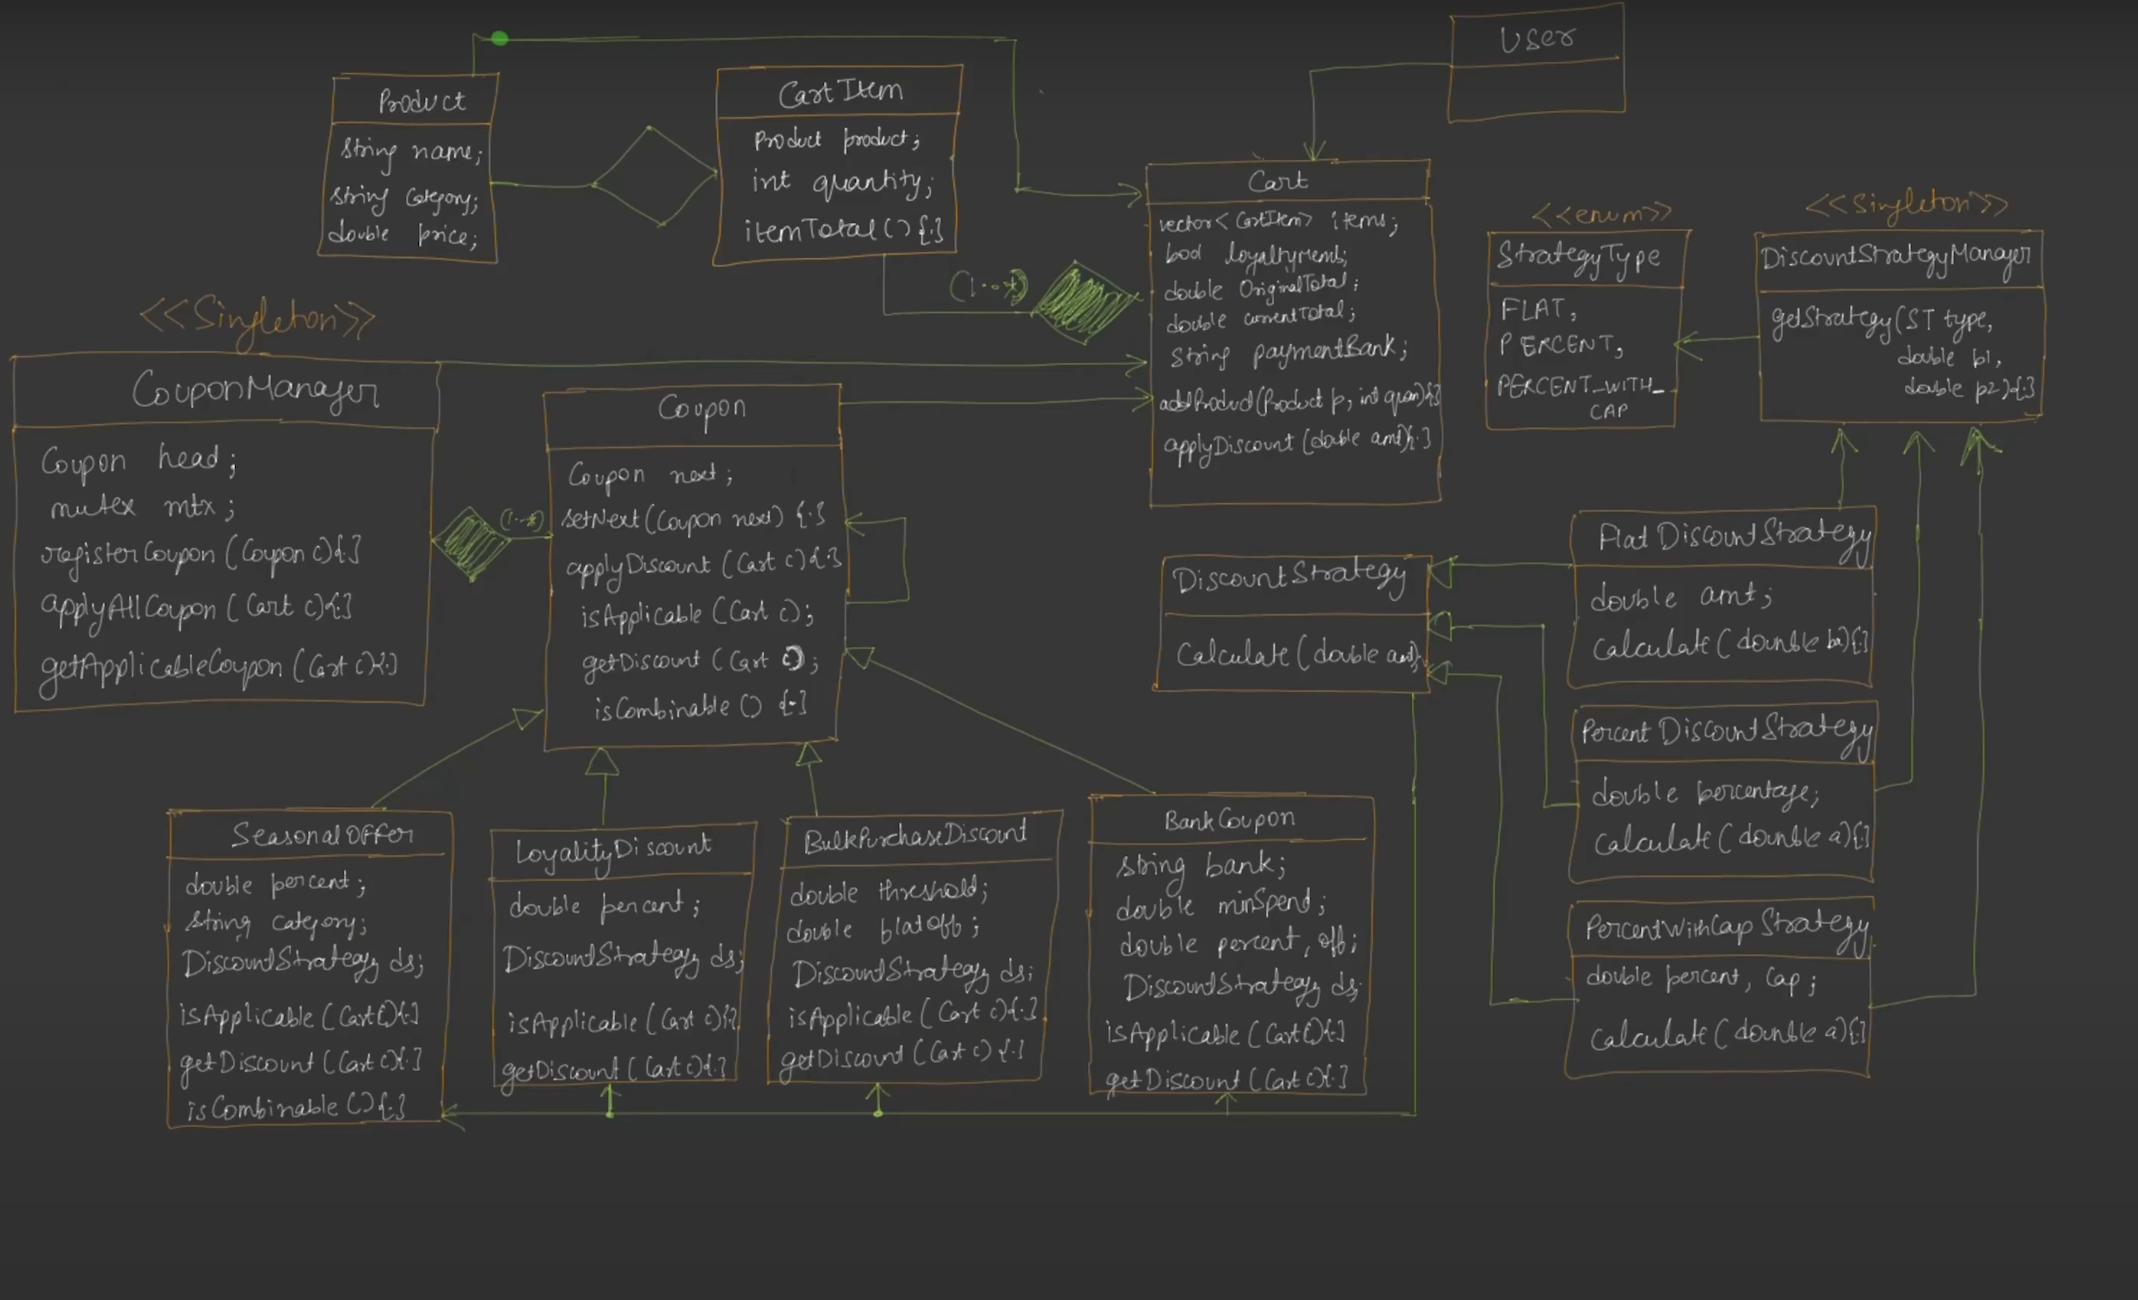 Product
String name;
String Category;
double price;
CartItem
Product product;
int quantity;
itemTotal() {.}
User
Cart
vector<CartItem> items;
bool loyaltyMemb;
double OriginalTotal;
double currentTotal;
String paymentBank;
addProduct(Product p, int quan){}
applyDiscount (double amt){.}
(1..*)
<<enum>>
StrategyType
FLAT,
PERCENT,
PERCENT_WITH_
CAP
<<Singleton>>
DiscountStrategyManager
getStrategy(ST type,
double p1,
double p2){.}
<<Singleton>>
CouponManager
Coupon head;
mutex mtx;
registerCoupon (Coupon c){.}
applyAllCoupon (Cart c){.}
getApplicableCoupon (Cart c){.}
(1..*)
Coupon
Coupon next;
setNext(Coupon next) {.}
applyDiscount (Cart c){.}
isApplicable (Cart c);
getDiscount (Cart c);
isCombinable () {.}
DiscountStrategy
Calculate (double amt);
Flat DiscountStrategy
double amt;
Calculate (dounble ba){.}
Percent DiscountStrategy
double percentage;
Calculate (dounble a){.}
PercentWithCap Strategy
double percent, Cap;
Calculate (dounble a){.}
SeasonalOffer
double percent;
String category;
DiscountStrategy ds;
isApplicable (Cart c){.}
getDiscount (Cart c){.}
isCombinable () {.}
LoyalityDiscount
double percent;
DiscountStrategy ds;
isApplicable (Cart c){.}
getDiscount (Cart c){.}
BulkPurchaseDiscount
double threshold;
double flatoff;
DiscountStrategy ds;
isApplicable (Cart c){.}
getDiscount (Cart c) {.}
BankCoupon
String bank;
double minSpend;
double percent, off;
DiscountStrategy ds;
isApplicable (Cart c){.}
getDiscount (Cart c){.}